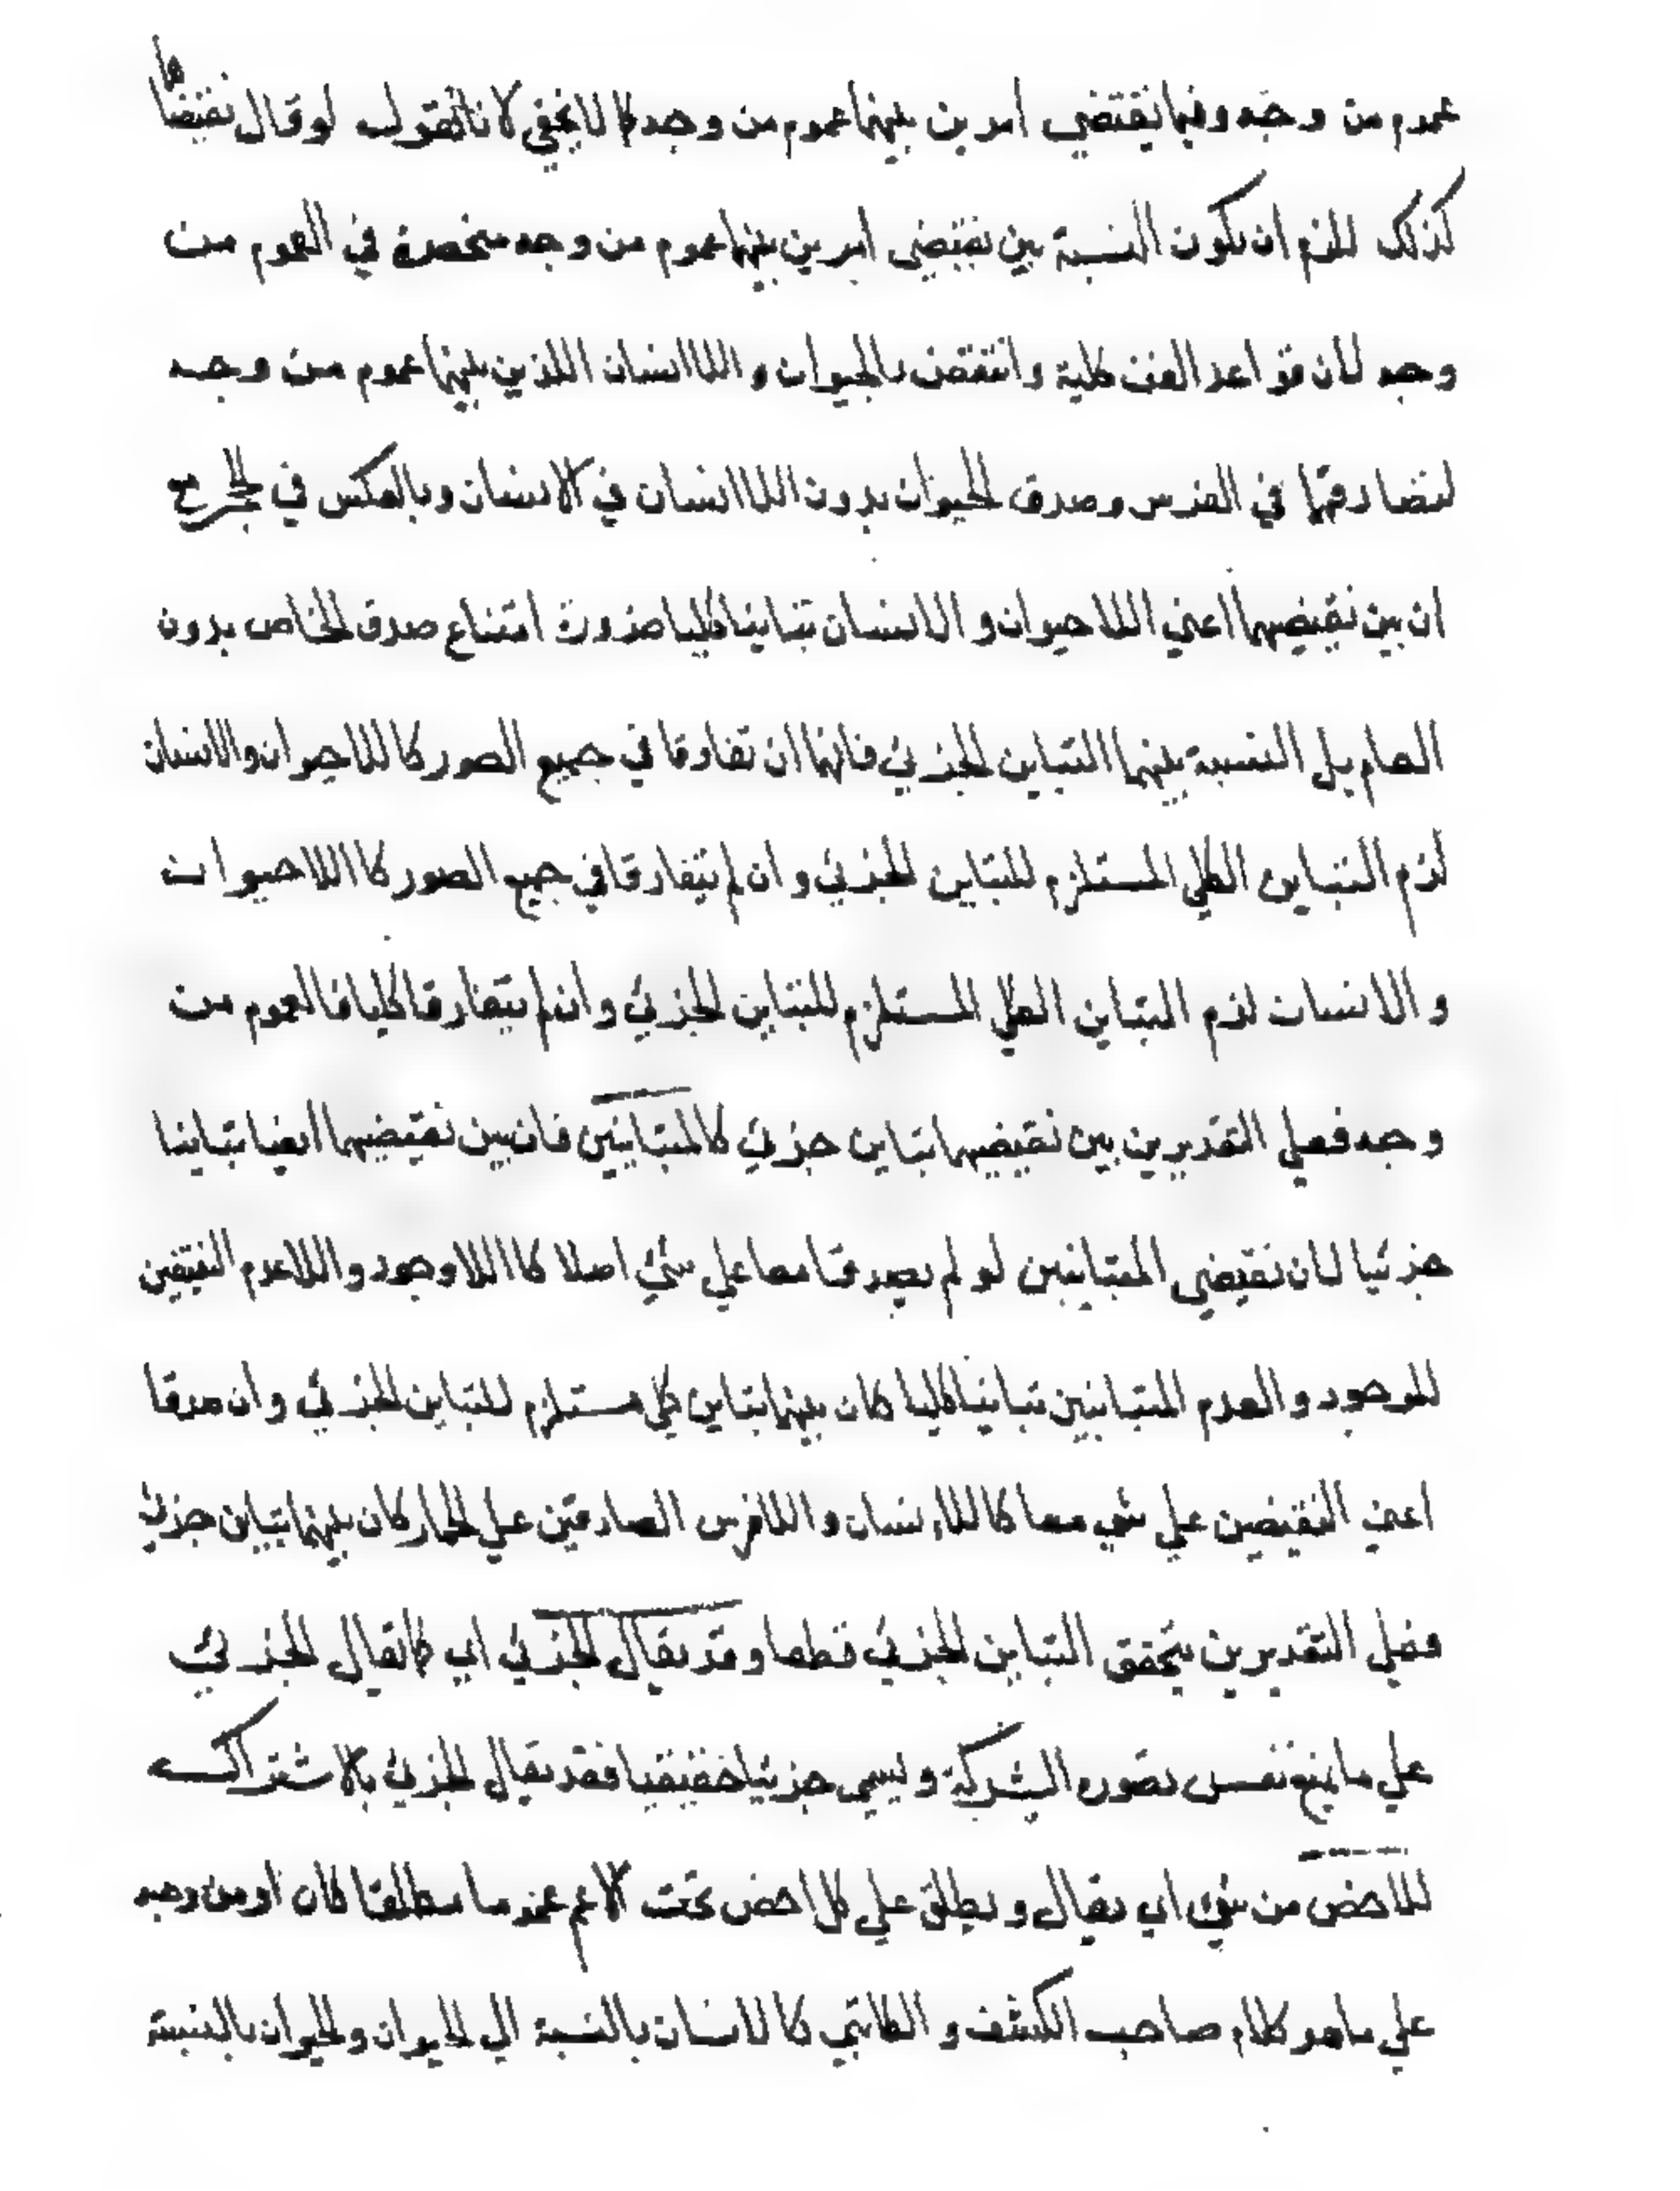 عموم من وجه وفيما نقتضي امرين بينهما عموم من وجه كما لا يخفى لانا نقول لو قال نقيضاهما
كذلك للزم ان تكون النسبة بين نقيضي امرين بينهما عموم من وجه منحصرة في العموم من
وجه لان قواعد الفن كلية وانتقض بالحيوان و اللاانسان اللذين بينهما عموم من وجه
لتصادقهما في الفرس وصدق الحيوان بدون اللاانسان في الانسان وبالعكس في الحجر مع
ان بين نقيضيهما اعني اللاحيوان و الانسان تباينا كليا ضرورة امتناع صدق الخاص بدون
العام بل النسبة بينهما التباين الجزئي فانهما ان تفارقا في جميع الصور كاللاحيوان والانسان
لزم التباين الكلي المستلزم للتباين الجزئي و ان لم يتفارقا في جميع الصور كا اللاحيوان
و الانسان لزم التباين الكلي المستلزم للتباين الجزئي وان لم يتفارقا كليا فالعموم من
وجه فعلى التقديرين بين نقيضيهما تباين جزئي كالمتباينين فان بين نقيضيهما ايضا تباينا
جزئيا لان نقيضي المتباينين لو لم يصدقا معا على شئ اصلا كا اللاوجود و اللاعدم النقيضين
للوجود و العدم المتباينين تباينا كليا كان بينهما تباين كلي مستلزم للتباين الجزئي وان صدقا
اعني النقيضين على شئ معا كاللاانسان و اللافرس الصادقين على الحمار كان بينهما تباين جزئي
فعلى التقديرين يتحقق التباين الجزئي قطعا وقد يقال الجزئي اي كما يقال الجزئي
على ما يمنع نفس تصوره الشركة و يسمى جزئيا حقيقيا فقد يقال الجزئي بالاشتراك
للاخص من شئ اي يقال و يطلق على كل اخص تحت الاعم عند ما مطلقا كان او من وجه
على ما هو كلام صاحب الكشف و الكاتبي كالانسان بالنسبة الى الحيوان والحيوان بالنسبة